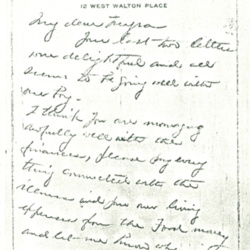 12 WEST WALTON PLACE
My dear
Your last two letters
were delightful and all
seems to be going well with
our
I think you are managing
awfully well with the
finances, please pay every
thing connected with the
and your own living
expenses from the Food money
and let me know